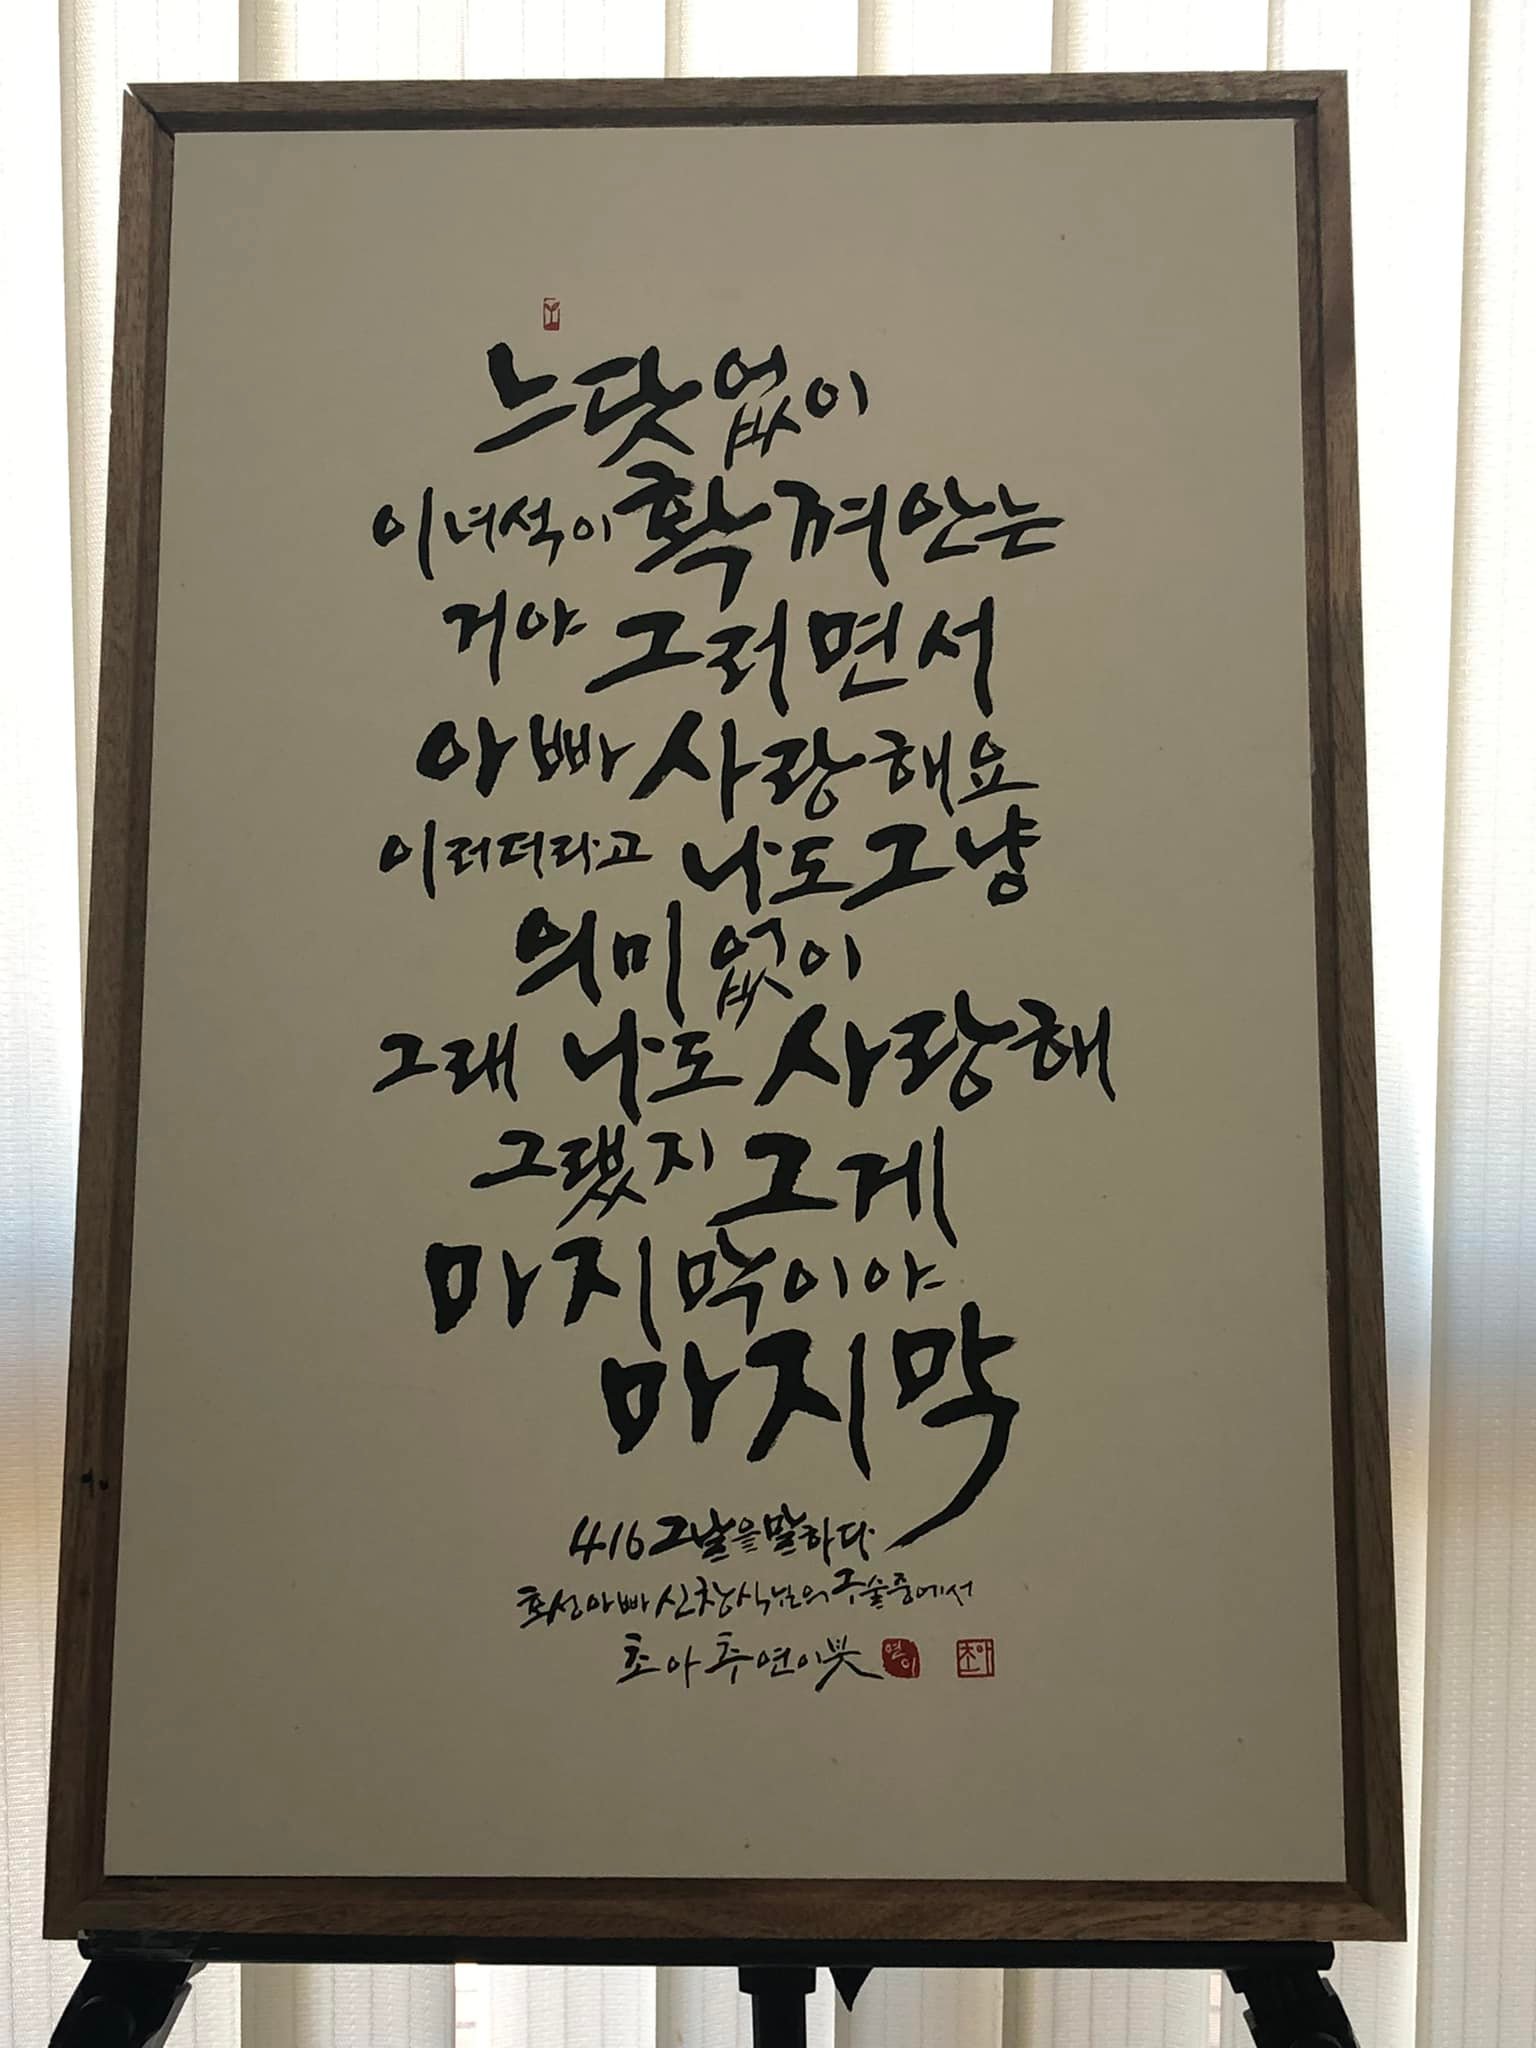 느닷없이
이녀석이 확 껴안는
거야 그러면서
아빠 사랑해요
이러더라고 나도 그냥
의미없이
그래 나도 사랑해
그랬지 그게
마지막이야
마지막
416 그날을 말하다
호성아빠 신창식님의 구술중에서
초아 추연이 붓
연이
초아